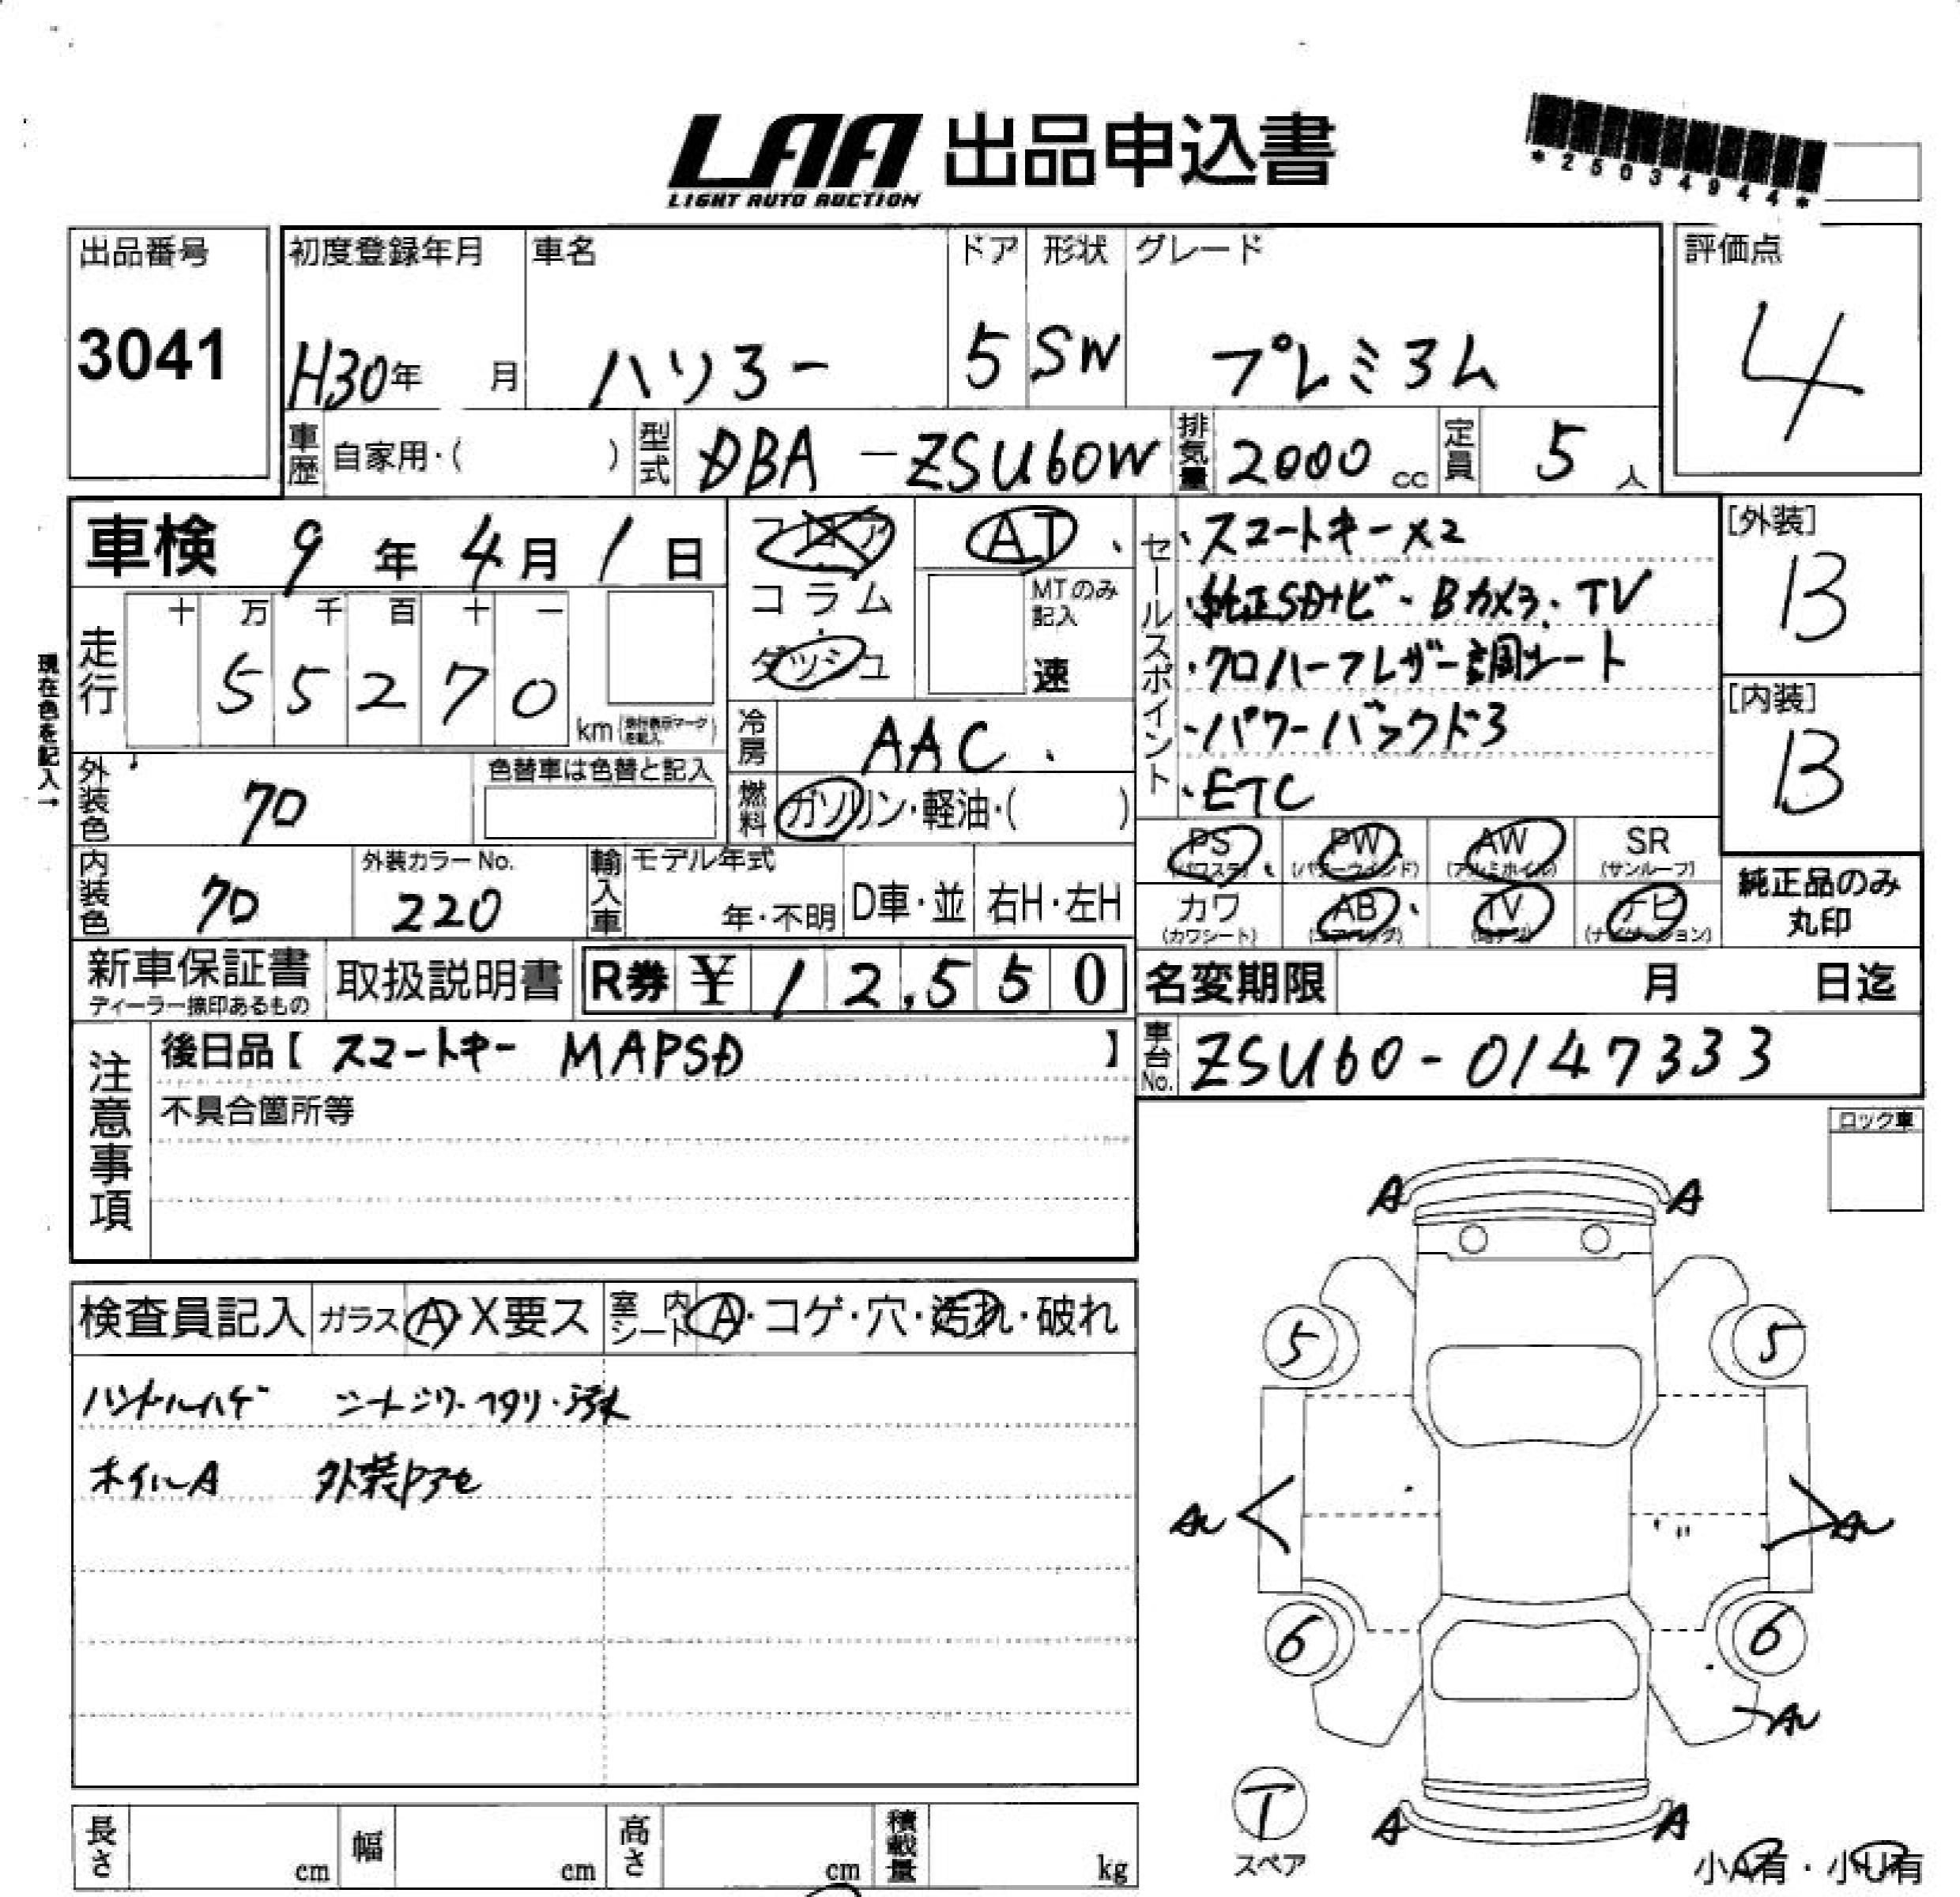 LAA 出品申込書
LIGHT AUTO AUCTION
*25034944*
出品番号
3041
初度登録年月 車名 ドア 形状 グレード
H30年 月 ハリアー 5 SW プレミアム
評価点
4
車歴 自家用・( ) 型式 DBA-ZSU60W 排気量 2000 cc 定員 5 人
車検 9年 4月 1日
フロア
コラム
ダッシュ
AT
MTのみ記入
速
走行 十 万 千 百 十 一
55270 km
現在色を記入→
冷房 AAC
燃料 ガソリン・軽油・( )
外装色 クロ 色替車は色替と記入
内装色 クロ 外装カラーNo. 220
輸入車 モデル年式 年・不明 D車・並 右H・左H
セールスポイント
・スマートキー×2
・純正SDナビ・Bカメラ・TV
・クロハーフレザー調シート
・パワーバックドア
・ETC
[外装]
B
[内装]
B
PS (パワステ) PW (パワーウインド) AW (アルミホイル) SR (サンルーフ)
カワ (カワシート) AB (エアバッグ) TV (地デジ) ナビ (ナビゲーション)
純正品のみ
丸印
新車保証書 ディーラー捺印あるもの
取扱説明書
R券 ¥12,550
名変期限 月 日迄
車台No. ZSU60-0147333
注意事項
後日品【 スマートキー MAPSD 】
不具合箇所等
ロック車
検査員記入 ガラス A・X要ス 室内シート A・コゲ・穴・汚れ・破れ
ハンドルハゲ シートシワ・ヘタリ・汚れ
ホイルA 外装
A A
5 5
AU AU
6 6
AU
T
スペア
A A
小A有・小U有
長さ cm 幅 cm 高さ cm 積載量 kg